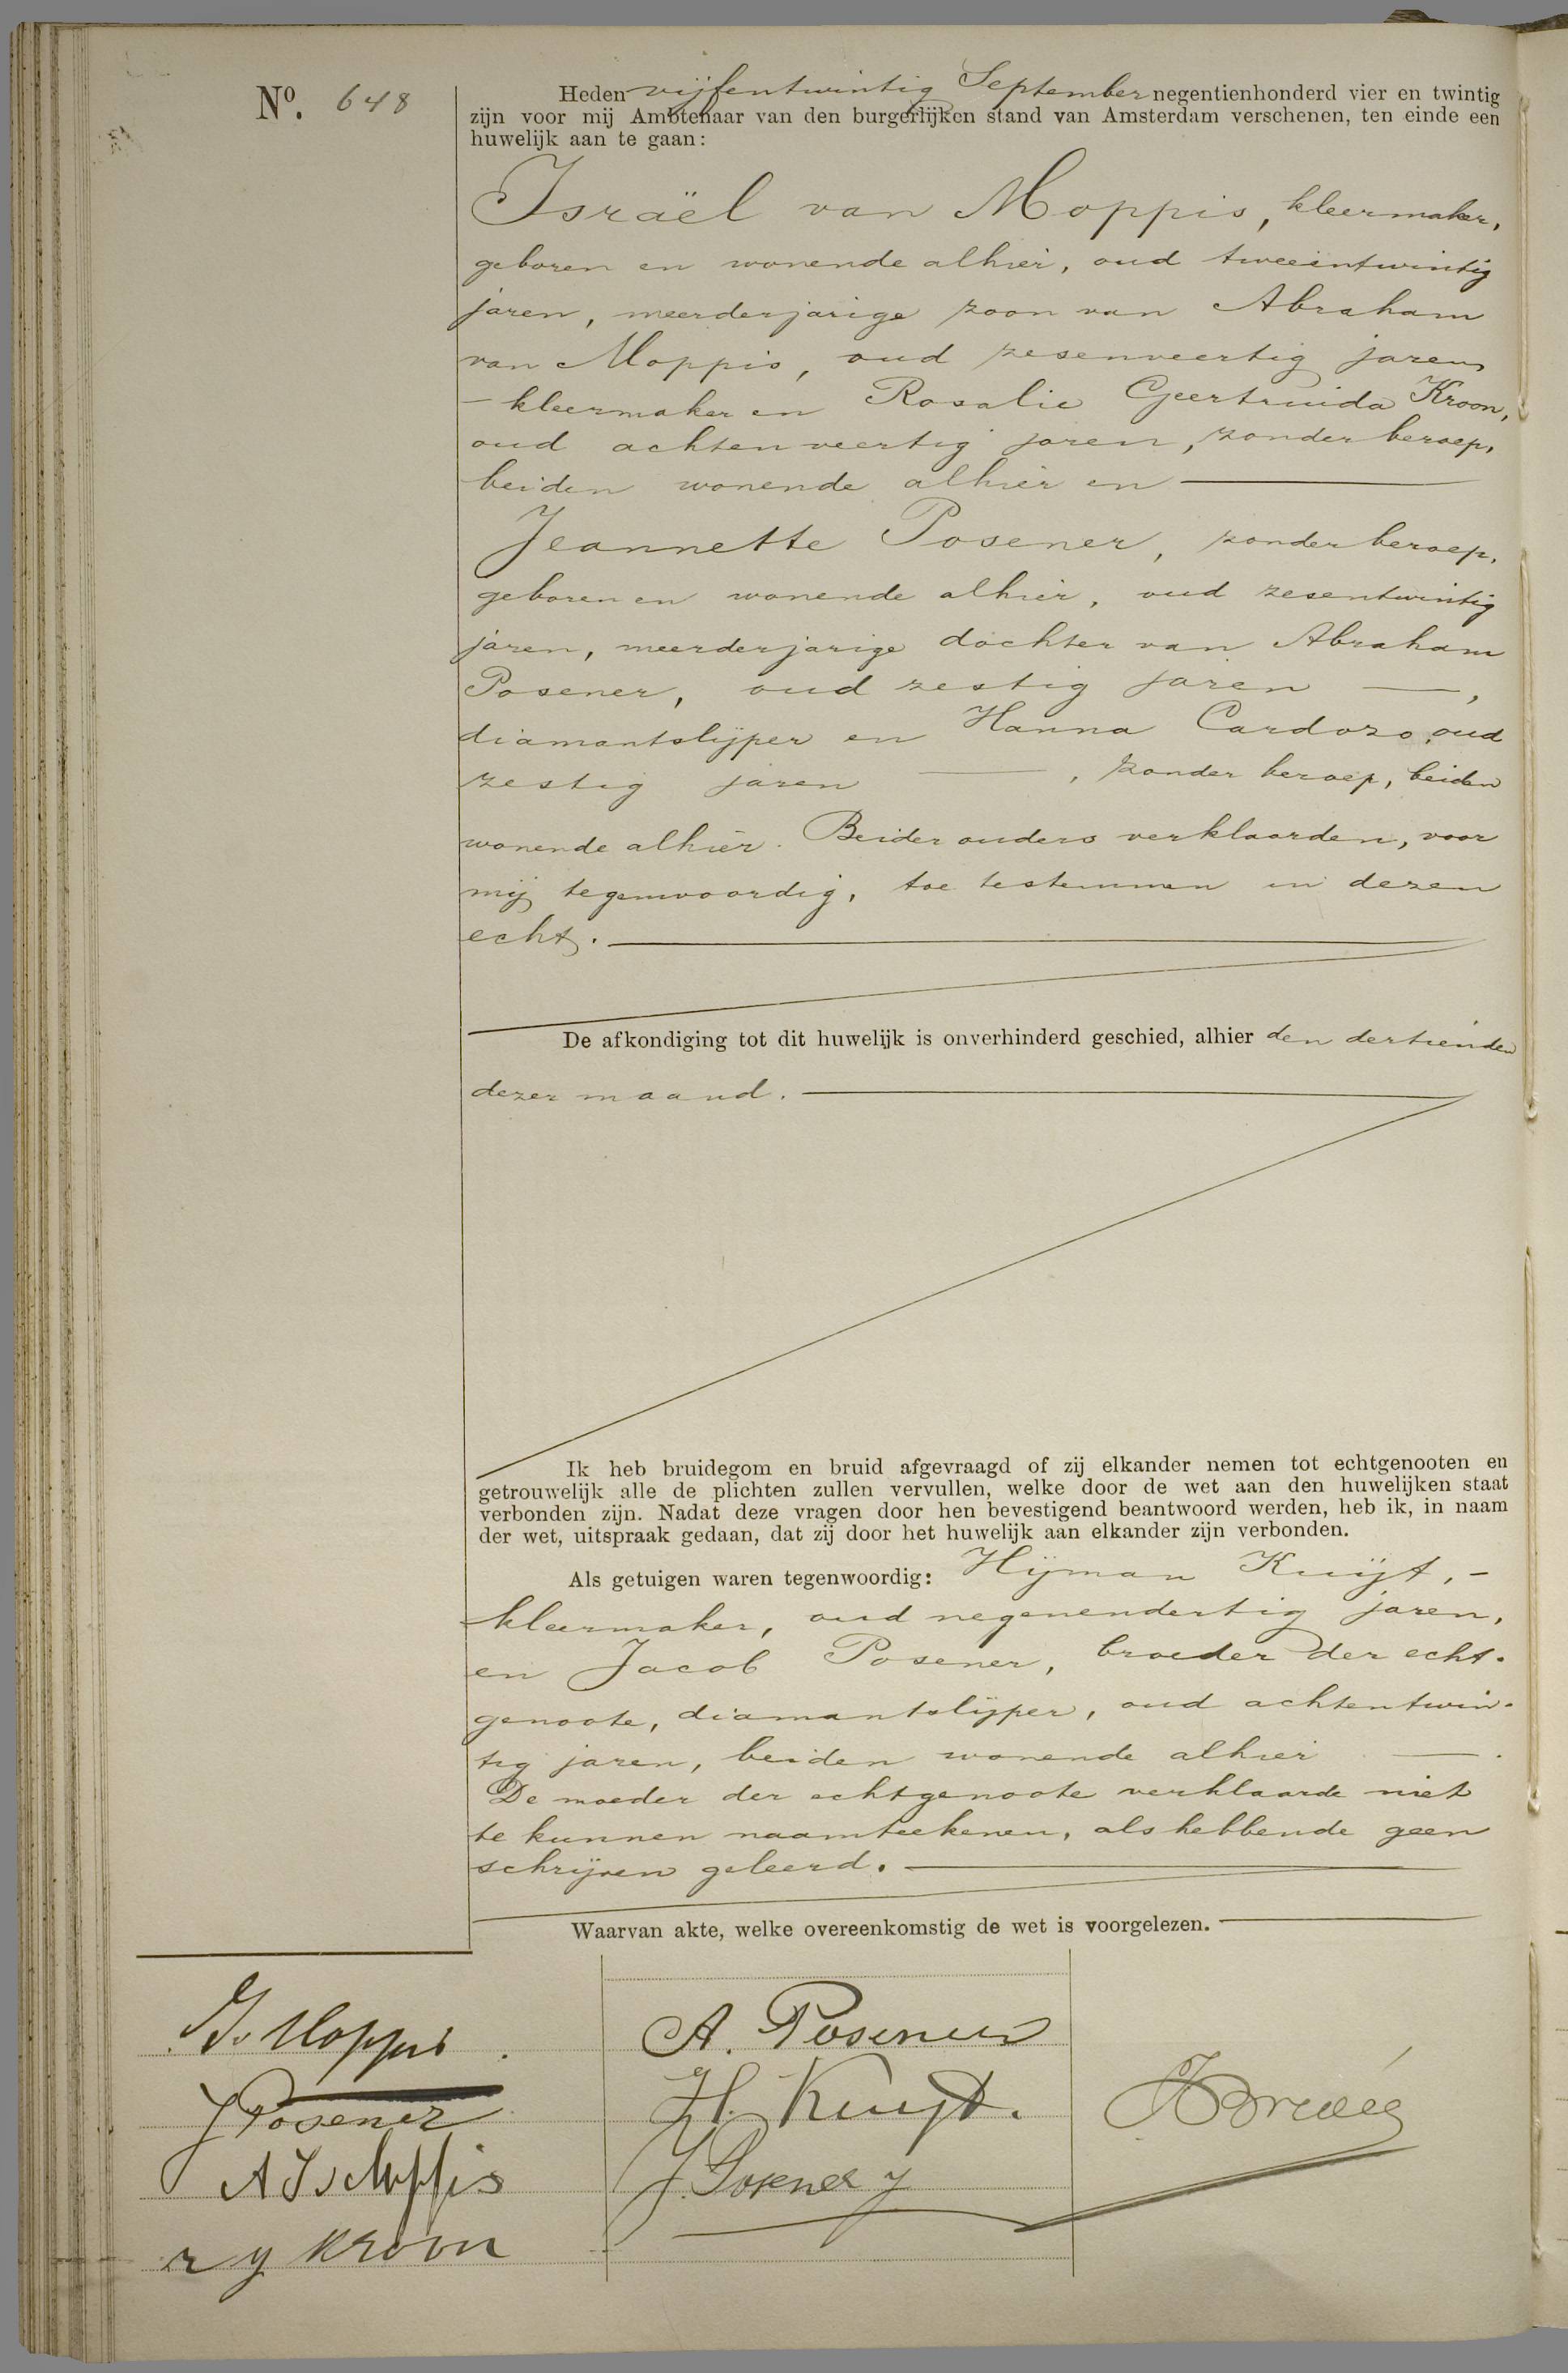 Nº. 648
Heden vijfentwintig September negentienhonderd vier en twintig
zijn voor mij Ambtenaar van den burgerlijken stand van Amsterdam verschenen, ten einde een
huwelijk aan te gaan:
Israël van Moppis, kleermaker,
geboren en wonende alhier, oud tweeëntwintig
jaren, meerderjarige zoon van Abraham
van Moppis, oud zesenveertig jaren
kleermaker en Rosalie Geertruida Kroon,
oud achtenveertig jaren, zonder beroep,
beiden wonende alhier en
Jeannette Posener, zonder beroep,
geboren en wonende alhier, oud zesentwintig
jaren, meerderjarige dochter van Abraham
Posener, oud zestig jaren —,
diamantslijper en Hanna Cardozo, oud
zestig jaren —, zonder beroep, beiden
wonende alhier. Beider ouders verklaarden, voor
mij tegenwoordig, toe te stemmen in dezen
echt.
De afkondiging tot dit huwelijk is onverhinderd geschied, alhier den dertienden
dezer maand.
Ik heb bruidegom en bruid afgevraagd of zij elkander nemen tot echtgenooten en
getrouwelijk alle de plichten zullen vervullen, welke door de wet aan den huwelijken staat
verbonden zijn. Nadat deze vragen door hen bevestigend beantwoord werden, heb ik, in naam
der wet, uitspraak gedaan, dat zij door het huwelijk aan elkander zijn verbonden.
Als getuigen waren tegenwoordig: Hijman Kuijt, -
kleermaker, oud negenendertig jaren,
en Jacob Posener, broeder der echt-
genoote, diamantslijper, oud achtentwin-
tig jaren, beiden wonende alhier —.
De moeder der echtgenoote verklaarde niet
te kunnen naamteekenen, als hebbende geen
schrijven geleerd.
Waarvan akte, welke overeenkomstig de wet is voorgelezen.
I. v Moppis.
J Posener
A I v Moppis
r g Kroon
A. Posener
H. Kuyt.
J. Posener J